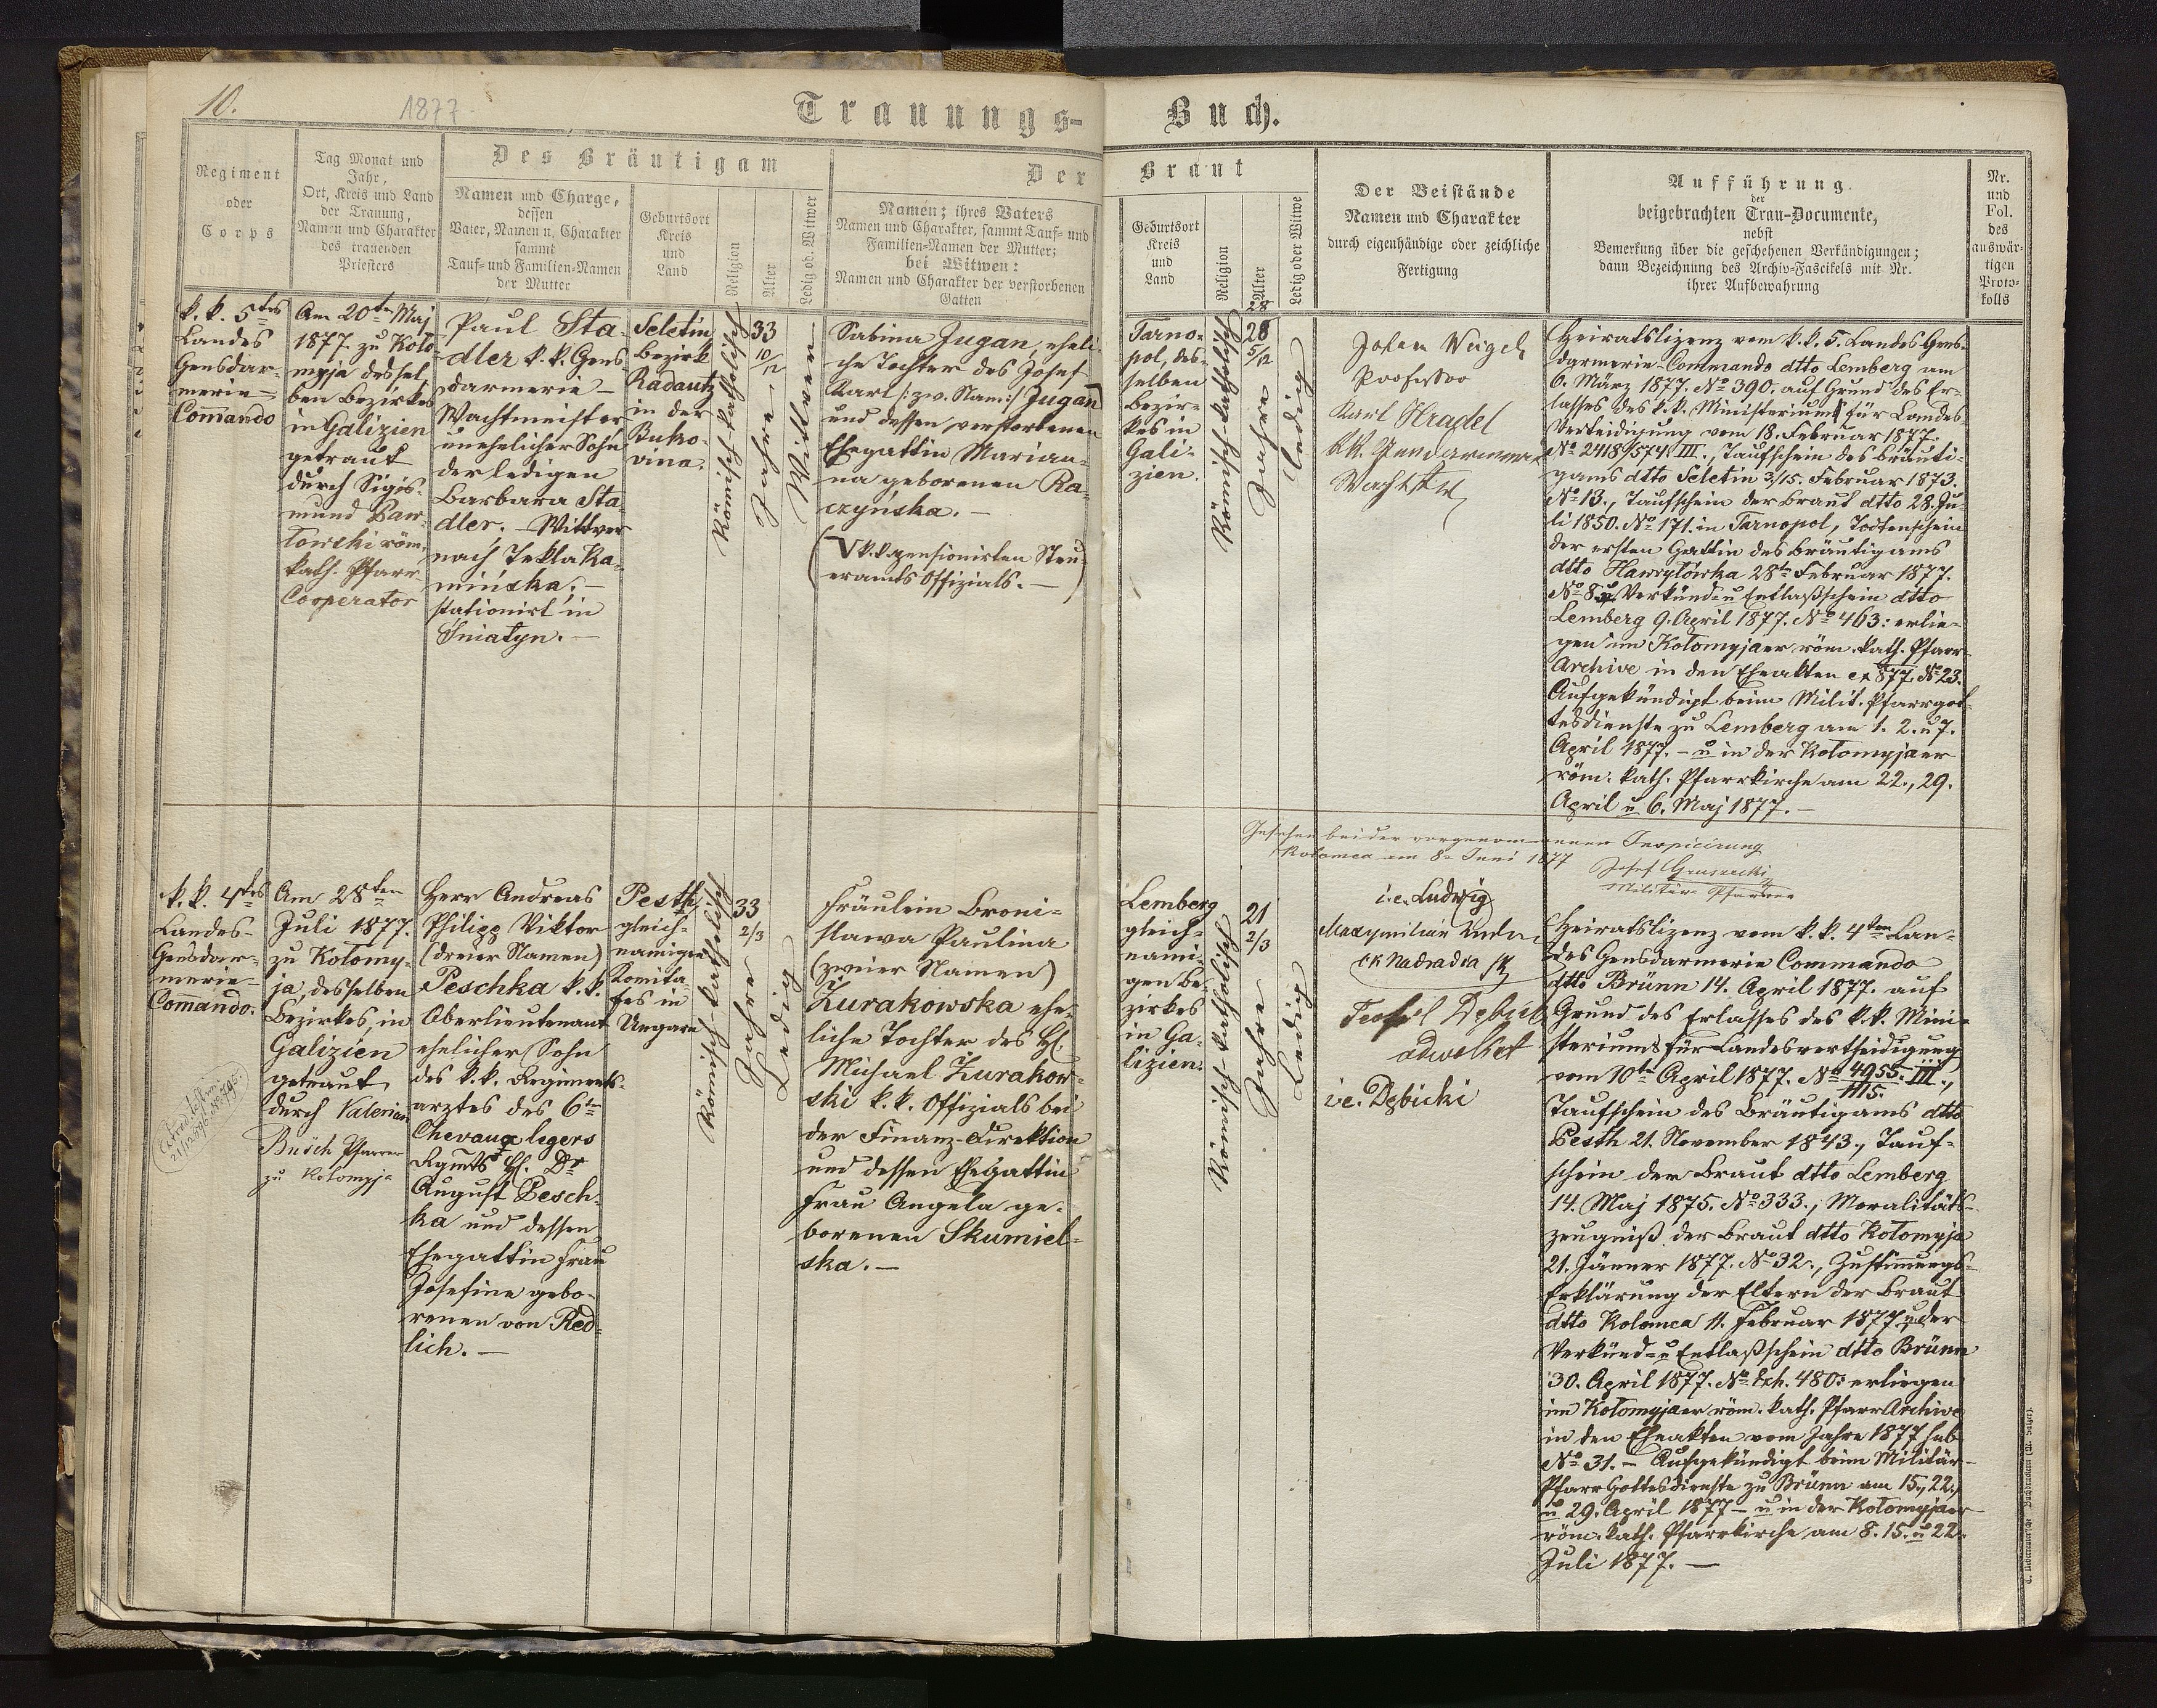 10.
1877
Trauungs-
Buch.
Regiment
oder
Corps
Tag Monat und
Jahr,
Ort, Kreis und Land
der Trauung,
Namen und Charakter
des trauenden
Priesters
Des Bräutigam
Namen und Charge,
dessen
Vater, Namen u. Charakter
sammt
Tauf- und Familien-Namen
der Mutter
Geburtsort
Kreis
und
Land
Religion
Alter
Ledig od. Witwer
Der
Namen; ihres Vaters
Namen und Charakter, sammt Tauf- und
Familien-Namen der Mutter;
bei Witwen:
Namen und Charakter der verstorbenen
Gatten
Braut
Geburtsort
Kreis
und
Land
Religion
Alter
Ledig oder Witwe
Der Beistände
Namen und Charakter
durch eigenhändige oder zeichliche
Fertigung
Aufführung
der
beigebrachten Trau-Documente,
nebst
Bemerkung über die geschehenen Verkündigungen;
dann Bezeichnung des Archiv-Fascikels mit Nr.
ihrer Aufbewahrung
Nr.
und
Fol.
des
auswär-
tigen
Proto-
kolls
k. k. 5tes
Landes
Gensdar-
merie-
Comando
Am 20ten Maj
1877. zu Koło-
myja dessel-
ben Bezirkes
in Galizien
getraut
durch Sigis-
mund Paw-
łowski röm.
kath. Pfarr
Cooperator
Paul Sta-
dler k. k. Gens-
darmerie-
Wachtmeister
unehelicher Sohn
der ledigen
Barbara Sta-
dler. – Wittwer
nach Tekla Ka-
mińska. –
stationirt in
Śniatyn. –
Seletin
Bezirk
Radautz
in der
Buko-
vina.
Römisch-katholisch
33
10/12
Jahre
Wittwer
Sabina Jugan, eheli-
che Tochter des Josef
Karl /: zw. Nam :/ Jugan
und dessen verstorbenen
Ehegattin Marian-
na geborenen Ra-
czyńska. –
(V k. k. pensionirten Steu-
eramts Offizials. –)
Tarno-
pol, des-
selben
Bezir-
kes in
Gali-
zien.
Römisch-katholisch
28
28
5/12
Jahre
ledig
Johann Weigel
Professor
Karl Hradel
KK. Gendarmerie
Wachtm
Heiratslizenz vom k. k. 5. Landes Gens-
darmerie-Commando dtto Lemberg am
6. März 1877. No 390; auf Grund des Er-
lasses des k. k. Ministeriums für Landes-
Verteidigung vom 18. Februar 1877.
No 2418/574 III., Taufschein des Bräuti-
gams dtto Seletin 3/15. Februar 1873.
No 13., Taufschein der Braut dtto 28. Ju-
li 1850. No 171. in Tarnopol, Todtenschein
der ersten Gattin des Bräutigams
dtto Hawryłówka 28ten Februar 1877.
No 8. u Verkünd- u Entlaßschein dtto
Lemberg 9. April 1877. No 463: erlie-
gen im Kołomyjaer röm. kath. Pfarr-
Archive in den Eheakten ex 877. No 23.
Aufgekündigt beim Milit. Pfarrgot-
tesdienste zu Lemberg am 1. 2. u 7.
April 1877. – u in der Kołomyjaer
röm. kath. Pfarrkirche am 22., 29.
April u 6. Maj 1877. –
Gesehen bei der vorgenommenen Inspicirung
Kolomea am 8. Juni 1877
Militär Pfarrer
k. k. 4tes
Landes-
Gensdar-
merie-
Comando.
Am 28ten
Juli 1877.
zu Kołomy-
ja, desselben
Bezirkes, in
Galizien
getraut
durch Valerian
Busch Pfarrer
zu Kołomyja
Herr Andreas
Philipp Viktor
(dreier Namen)
Peschka k. k.
Oberlieutenant
ehelicher Sohn
des k. k. Regiments-
arztes des 6ten
Chevaux legers
Rgmts H. Dr
August Pesch-
ka und dessen
Ehegattin Frau
Josefine gebo-
renen von Red-
lich. –
Pesth,
gleich-
namigen
Komita-
tes in
Ungarn
Römisch-katholisch
33
2/3
Jahre
Ledig
Fräulein Broni-
slawa Paulina
(zweier Namen)
Żurakowska ehe-
liche Tochter des H.
Michael Żurakow-
ski k. k. Offizials bei
der Finanz-Direktion
und dessen Ehegattin
Frau Angela ge-
borenen Skumiel-
ska. –
Lemberg
gleich-
nami-
gen Be-
zirkes
in Ga-
lizien.
Römisch-katholisch
21
2/3
Jahre
Ledig
i. e. Ludwig
Maxymilian
ck Nadradca
Teofil Dębicki
adwokat
i. e. Dębicki
Heiratslizenz vom k. k. 4ten Lan-
des Gensdarmerie Commando
dtto Brünn 14. April 1877. auf
Grund des Erlasses des k. k. Mini-
steriums für Landesvertheidigung
vom 10ten April 1877. No 4955/1115. III.,
Taufschein des Bräutigams dtto
Pesth 21. November 1843., Tauf-
schein der Braut dtto Lemberg
14. Maj 1875. No 333., Moralitäts-
zeugniß der Braut dtto Kołomyja
21. Jänner 1877. No 32., Zustimmungs-
Erklärung der Eltern der Braut
dtto Kolomea 11. Februar 1877. u der
Verkünd- u Entlaßschein dtto Brünn
30. April 1877. No Exh. 480: erliegen
im Kołomyjaer röm. kath. Pfarr Archive
in den Eheakten vom Jahre 1877 sub
No 31. – Aufgekündigt beim Militär-
Pfarr Gottesdienste zu Brünn am 15., 22.,
u 29. April 1877 – u in der Kołomyjaer
röm. kath. Pfarrkirche am 8. 15. u 22.
Juli 1877. –